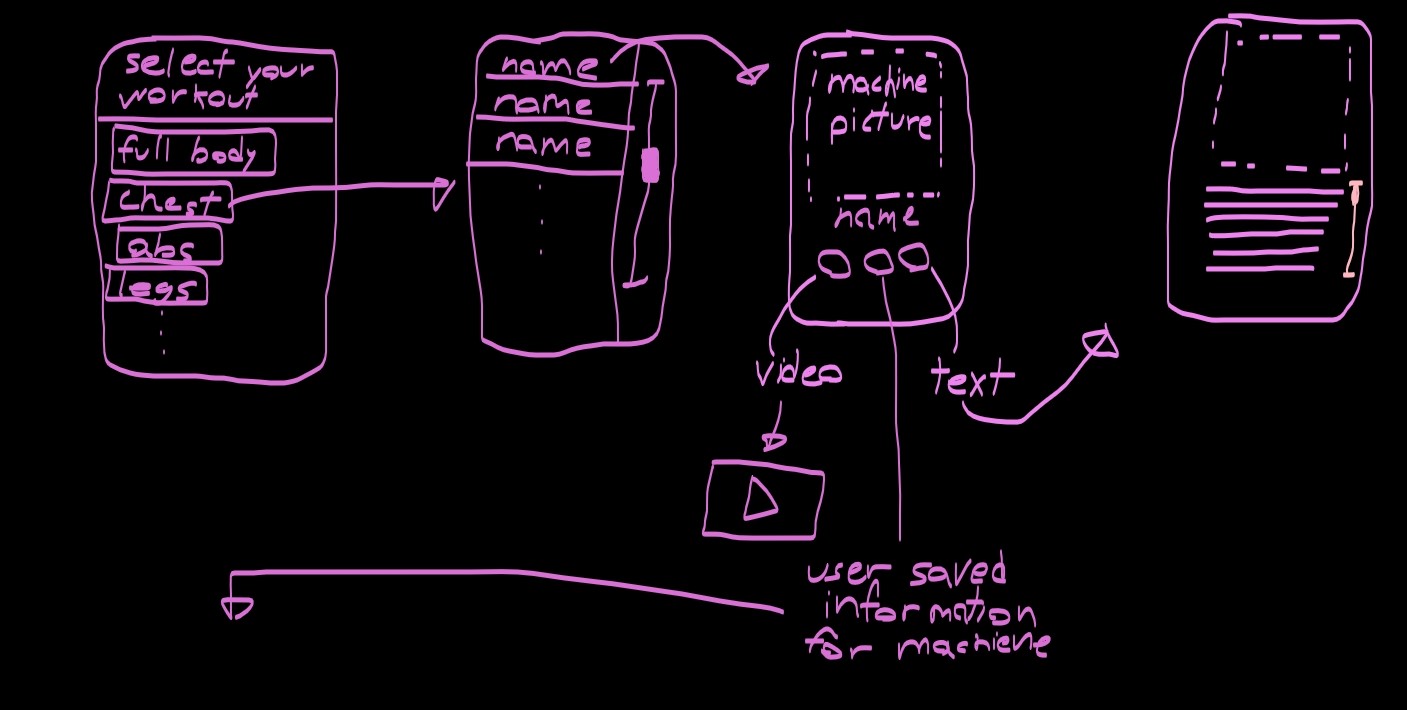 select your
workout
full body
chest
abs
legs
name
name
name
machine
picture
name
video
text
user saved
information
for machiene